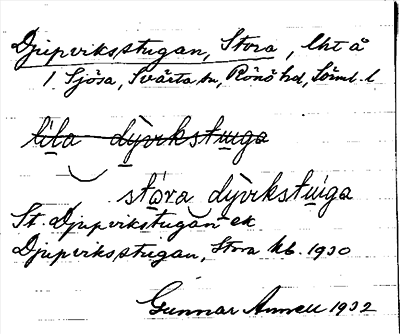 Djupviksstugan, Stora, lht å
1 Sjösa, Svärta sn, Rönö hd, Söml. l
lila dỳvikstuga
stóra dỳvikstuga
St. Djupvikstugan ek
Djupviksstugan, Stora kb. 1930
Gunnar Annell 1932